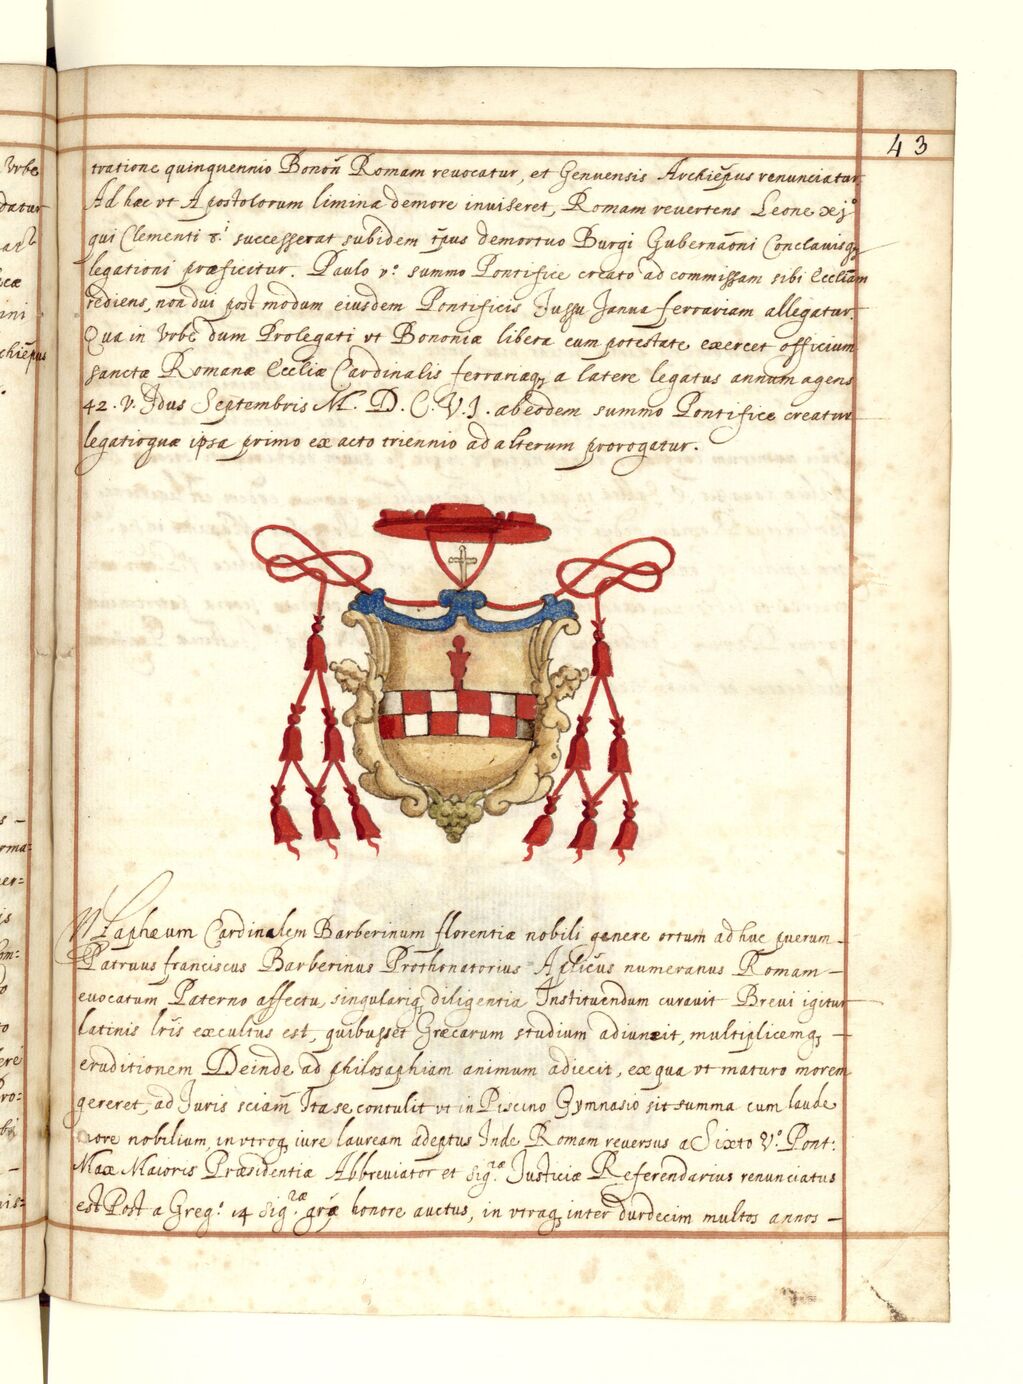 43
tratione quinquennio Bonoñ Romam reuocatur, et Genuensis Archiẽpus renunciatur.
Ad hæc vt Apostolorum limina demore inuiseret, Romam reuertens Leone xj.º
qui Clementi 8.ⁱ successerat subidem t̃pus demortuo Burgi Gubernãoni Conclauisq;
legationi præficitur. Paulo v.º summo Pontifice creato ad commissam sibi Eccliãm
rediens, non diu post modum eiusdem Pontificis Jussu Janua ferrariam allegatur.
Qua in Vrbe dum Prolegati vt Bononiæ libera cum potestate exercet officium
sanctæ Romanæ Eccliæ Cardinalis ferrariæq; a latere legatus annum agens
42. V. Idus Septembris M. D. C. V. I. abeodem summo Pontifice creatur
legatioquæ ipsa primo exacto triennio ad alterum prorogatur.
Maphæum Cardinalem Barberinum florentiæ nobili genere ortum adhuc puerum –
Patruus franciscus Barberinus Prothonatorius Aplicus numeranus Romam –
euocatum Paterno affectu, singulariq; diligentia Instituendum curauit Breui igitur
latinis lr̃is excultus est, quibusset Græcarum studium adiunxit, multiplicemq; –
eruditionem Deinde ad philosophiam animum adiecit, ex qua vt maturo morem
gereret, ad Juris sciam̃ Ita se contulit vt in Piscino Gymnasio sit summa cum laude
more nobilium, in vtroq; iure lauream adeptus Inde Romam reuersus a Sixto V.º Pont:
Max Maioris Præsidentiæ Abbreuiator et sig.ræ Justiciæ Referendarius renunciatus
est Post a Greg.º 14 sig.ræ gr̃æ honore auctus, in vtraq; inter durdecim multos annos –